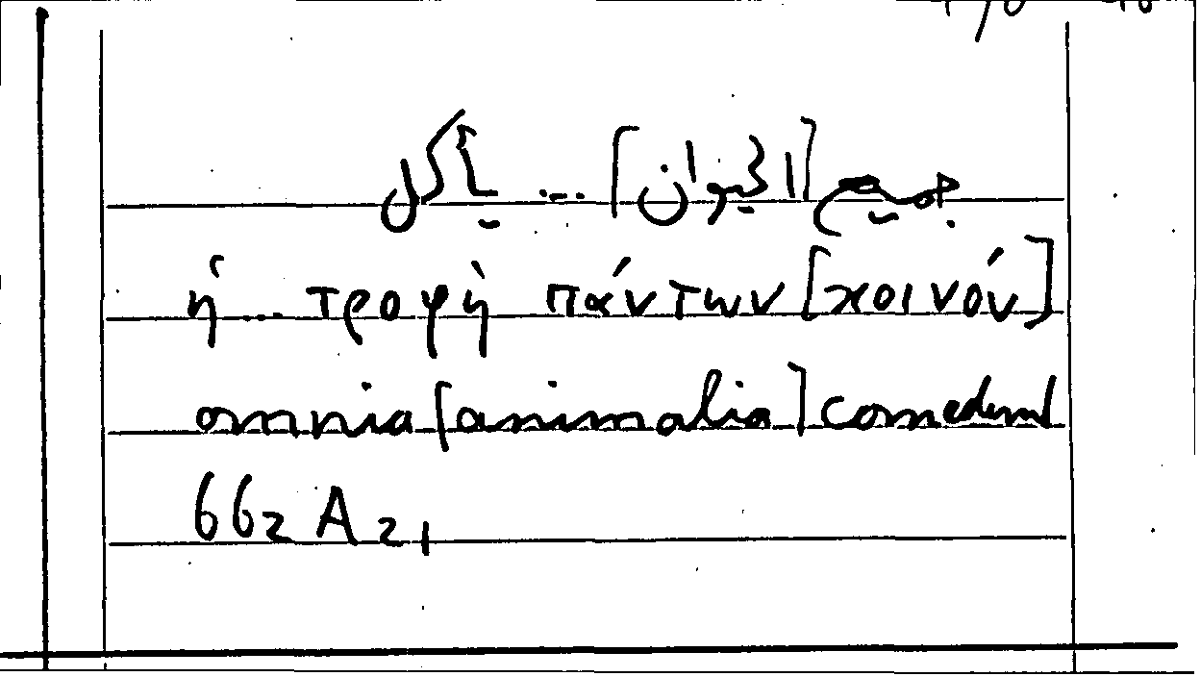 جميع [الحيوان] ... يأكل
ἡ ... τροφὴ πάντων [κοινόν]
omnia [animalia] comedunt
662 A 21